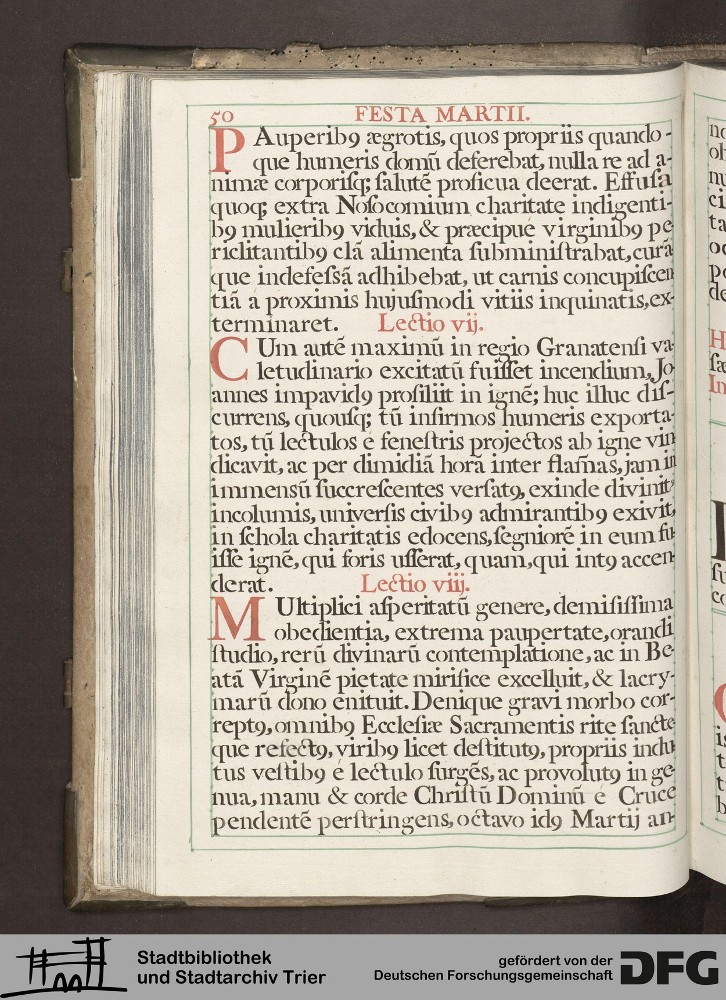 50 FESTA MARTII.
PAuperib9 ægrotis, quos propriis quando-
que humeris domū deferebat, nulla re ad a-
nimæ corporisq; salutē proficua deerat. Effusa
quoq; extra Nosocomium charitate indigenti-
b9 mulierib9 viduis, & præcipue virginib9 pe-
riclitantib9 clā alimenta subministrabat, curā
que indefessā adhibebat, ut carnis concupiscen
tiā a proximis hujusmodi vitiis inquinatis, ex-
terminaret. Lectio vij.
CUm autē maximū in regio Granatensi va-
letudinario excitatū fuisset incendium, Jo
annes impavid9 prosiliit in ignē; huc illuc dis-
currens, quousq; tū infirmos humeris exporta-
tos, tū lectulos e fenestris projectos ab igne vin
dicavit, ac per dimidiā horā inter flam̄as, jam in
immensū succrescentes versat9, exinde divinit9
incolumis, universis civib9 admirantib9 exivit,
in schola charitatis edocens, segniorē in eum fu
isse ignē, qui foris usserat, quam, qui int9 accen
derat. Lectio viij.
MUltiplici asperitatū genere, demississima
obedientia, extrema paupertate, orandi
studio, rerū divinarū contemplatione, ac in Be-
atā Virginē pietate mirifice excelluit, & lacry-
marū dono enituit. Denique gravi morbo cor-
rept9, omnib9 Ecclesiæ Sacramentis rite sancte
que refect9, virib9 licet destitut9, propriis indu
tus vestib9 e lectulo surgēs, ac provolut9 in ge-
nua, manu & corde Christū Dominū e Cruce
pendentē perstringens, octavo id9 Martij an-
Stadtbibliothek
und Stadtarchiv Trier
gefördert von der
Deutschen Forschungsgemeinschaft
DFG